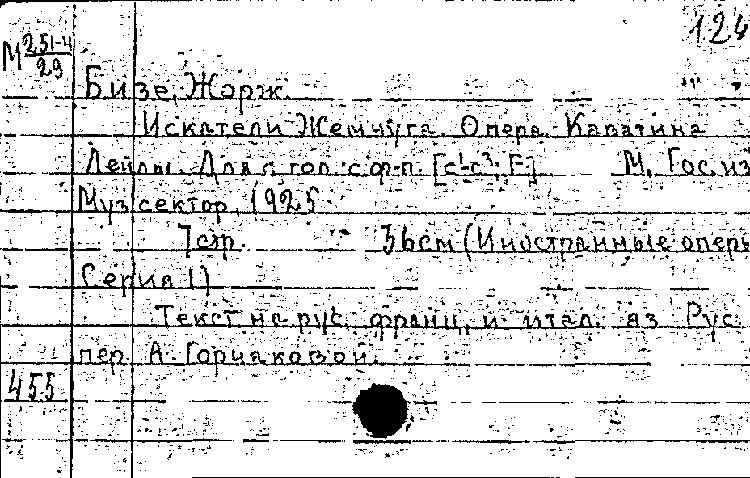 124
М 251-4
29
Бизе, Жорж.
Искатели Жемчуга. Опера. Каватина
Лейлы. Для г. гол. с ф-п. [c¹-c³; F-] М. Гос. из
Муз сектор, 1925
7 стр. 36 см (Иностранные оперы
Серия 1)
Текст на рус. франц. и итал. яз Рус.
пер. А. Горчаковой.
455